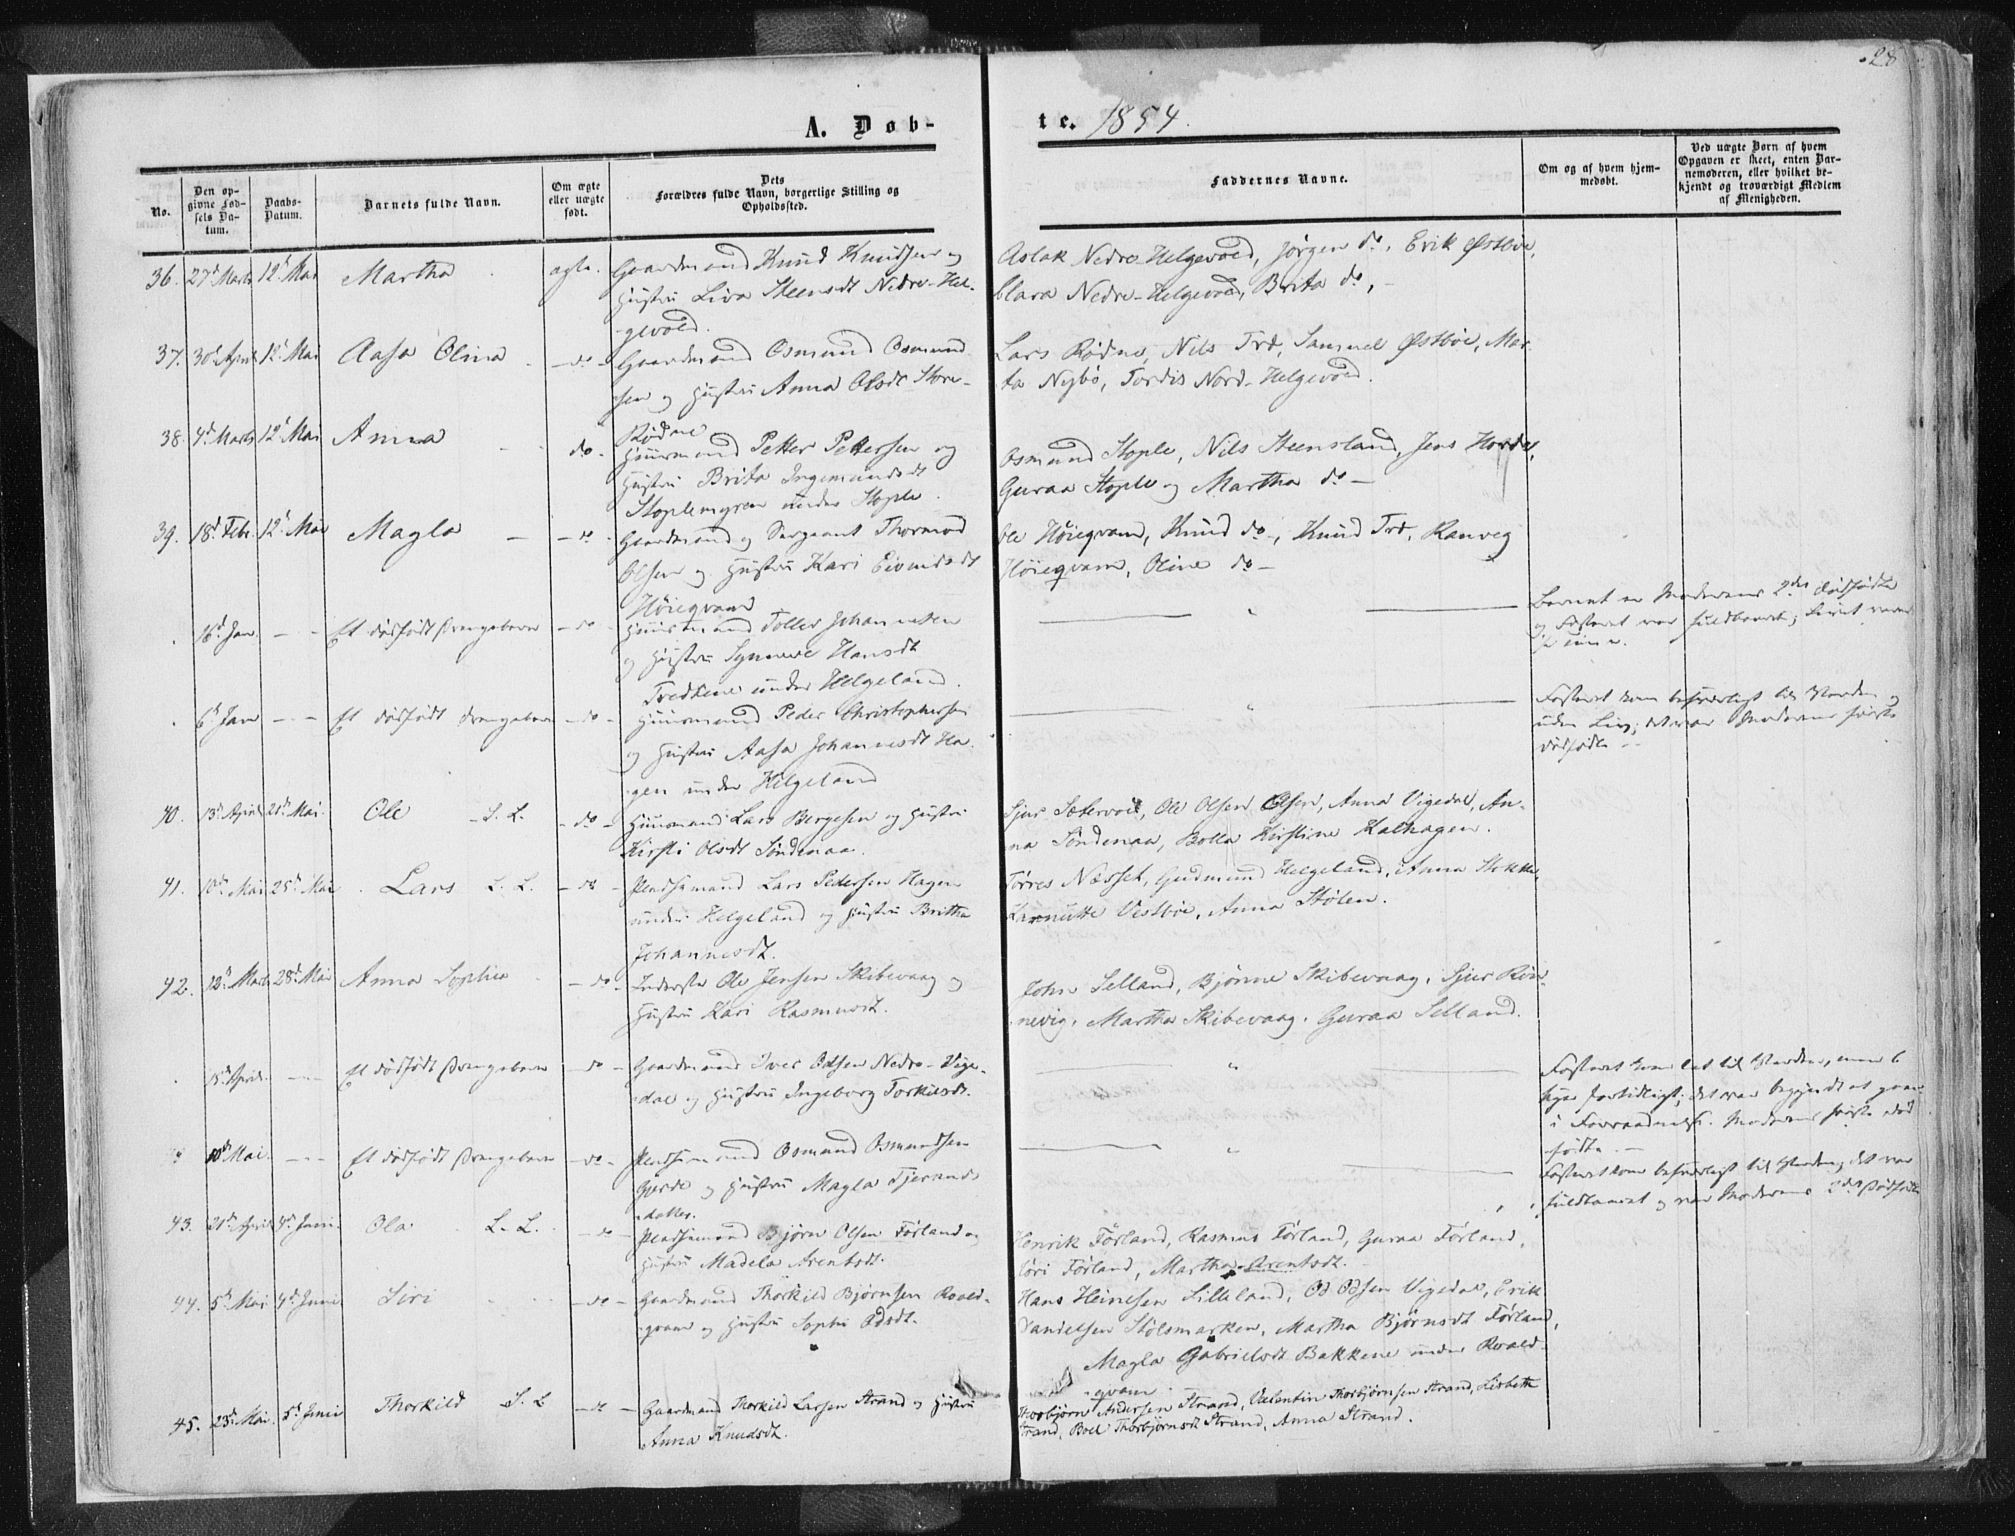 28
A. Døb-
te. 1854.
No.
Den op-
givne Fød-
sels Da-
tum.
Daabs-
Datum.
Barnets fulde Navn.
Om ægte
eller uægte
født.
Dets
Forældres fulde Navn, borgerlige Stilling og
Opholdssted.
Faddernes Navne.
Om og af hvem hjem-
medøbt.
Ved uægte Børn af hvem
Opgaven er skeet, enten Bar-
nemoderen, eller hvilket be-
kjendt og troværdigt Medlem
af Menigheden.
36. 27d Marts 12d Mai Martha ægte. Gaardmand Knud Knudsen og
Hustru Liva Steensdt Nedre-Hel-
gevold.
Aslak Nedre-Helgevold, Jørgen do, Erik Østbøe,
Clara Nedre-Helgevold, Brita do,
37. 30d April 12d Mai Aasa Olina - do - Gaardmand Osmund Osmund-
sen og Hustru Anna Olsdt Store-
Rødne
Lars Rødne, Nils Trd, Samuel Østbøe, Mar-
ta Nybø, Tordis Nord-Helgevold.
38. 4d Marts 12d Mai Anna do - Huusmand Petter Pettersen og
Hustru Brita Ingemundsdt
Stoplemyren under Stople.
Osmund Stople, Nils Steensland, Jens Hovde,
Guraa Stople og Martha do -
39. 18d Febr. 12d Mai Magla - do - Gaardmand og Sergeant Thormod
Olsen og Hustru Kari Eivindsdt
Høieqvam
Ole Høieqvam, Knud do -, Knud Trd, Ranveg
Høieqvam, Oline do -
16d Jan. - - Et dødfødt Drengebarn - do - Huusmand Tollev Johannesen
og Hustru Synneve Hansdt
Tvedtene under Helgeland.
Barnet er Moderens 2det dødfødte
og Fosteret var fuldbaaret;
6d Jan - - Et dødfødt Drengebarn - do - Huusmand Peder Christophersen
og Hustru Aasa Johannesdt Ha-
gen under Helgeland
Fosteret kom besværligt til Verden og
uden Liv; det var Moderens første
dødfødte -
40. 13d April 21d Mai. Ole - S. L. - do - Huusmand Lars Bergesen og Hustru
Kirsti Olsdt Søndenaa.
Sjur Sætervold, Ole Olsen Olsen, Anna Vigedal, An-
na Søndenaa, Bolla Kirstine Kalhagen.
41. 10d Mai 25d Mai Lars L. L. - do - Pladsemand Lars Pedersen Hagen
under Helgeland og Hustru Britha
Johannesdt.
Torres Næsset, Gudmund Helgeland, Anna Stokke,
Vestbøe, Anna Stølen.
42. 12d Marts 28d Mai Anna Sophie - do - Inderste Ole Jensen Skibevaag og
Hustru Kari Rasmusdt.
John Selland, Bjønne Skibevaag, Sjur Røn-
nevig, Martha Skibevaag, Guraa Selland.
15d April. - - Et dødfødt Drengebarn - do - Gaardmand Iver Odsen Nedre-Vige-
dal og Hustru Ingeborg Torkilsdt.
Fosteret kom let til Verden, men 6
Uger fortidligt; det var begyndt at gaae
i Forraadnelse. Moderens første død-
fødte. -
10d Mai. - - Et dødfødt Drengebarn - do - Pladsemand Osmund Osmundsen
Gjerde og Hustru Magla Tjerands-
datter.
Fosteret kom besværligt til Verden, det var
fuldbaaret og var Moderens 2det dødfødte
43. 21d April 4d Juni. Ola L. L. - do - Pladsemand Bjørn Olsen Førland og
Hustru Madela Arentsdt.
Henrik Førland, Rasmus Førland, Guraa Førland,
Siri Førland, Martha Arentsdt.
44. 5d Mai 4d Juni Siri - do - Gaardmand Thorkild Bjørnsen Roald-
qvam og Hustru Sophi Odsdt.
Hans Heinesen Lilleland, Od Odsen Vigedal, Erik
Danielsen Stølsmarken, Martha Bjørnsdt Førland,
Magla Gabrielsdt Bakkene under Roald-
qvam
45. 23d Mai. 5d Juni Thorkild S. L - do - Gaardmand Thorkild Larsen Strand og Hustru
Anna Knudsdt.
Thorbjørn Andersen Strand, Valentin Thorbjørnsen Strand, Lisbeth
Strand, Boel Thorbjørnsdt Strand, Anna Strand.